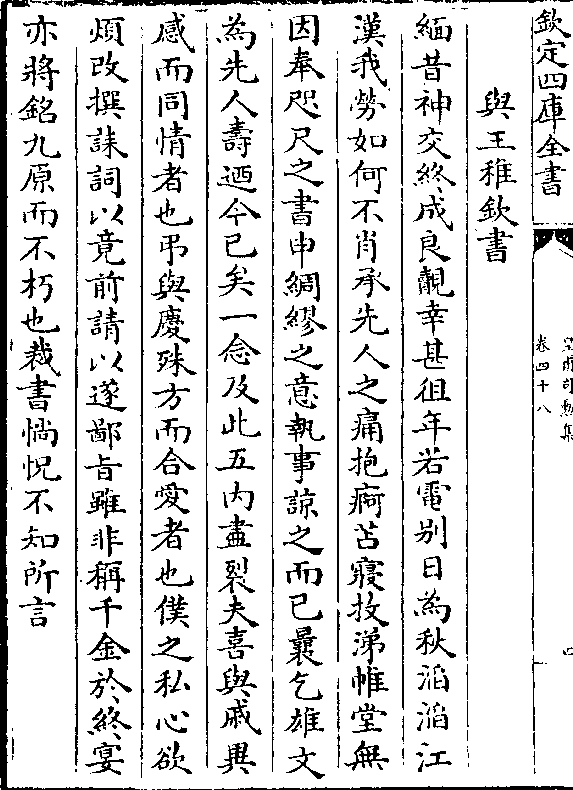 欽定四庫全書
卷四十八
與王稚欽書
緬昔神交終成良覿幸甚徂年若電别日為秋滔滔江
漢我勞如何不肖承先人之痛抱痾苫寢抆涕帷堂無
因奉咫尺之書申綢繆之意執事諒之而已曩乞雄文
為先人壽迺今已矣一念及此五内盡裂夫喜與戚異
感而同情者也弔與慶殊方而合愛者也僕之私心欲
煩改撰誄詞以竟前請以遂鄙旨雖非稱千金於終宴
亦將銘九原而不朽也裁書惝怳不知所言